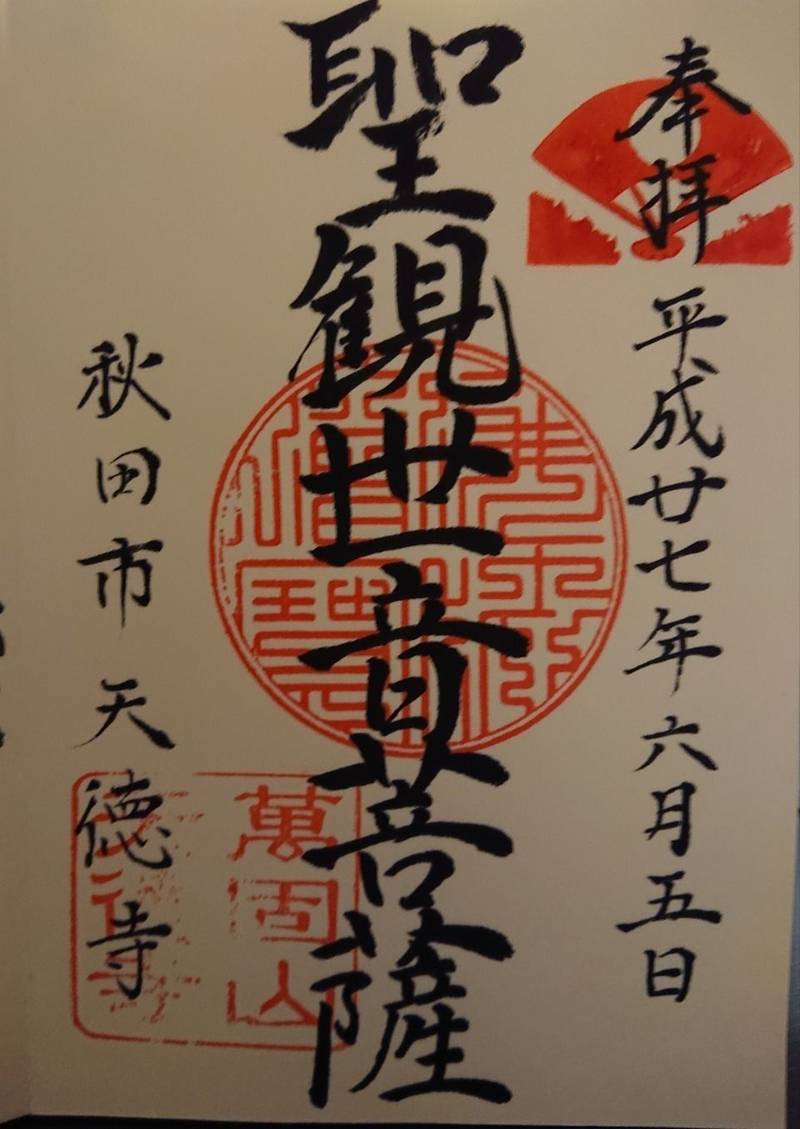 奉拝 平成廿七年六月五日
聖観世音菩薩
秋田市天徳寺
萬固山